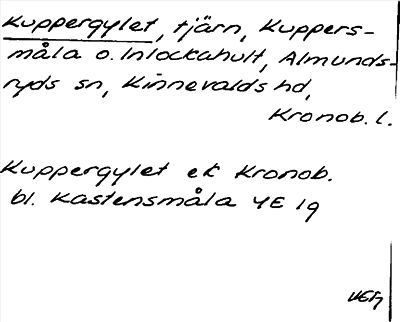 Kuppergylet, tjärn, Kuppers-
måla o. Inlockahult, Almunds-
ryds sn, Kinnevalds hd,
Kronob. l.
Kuppergylet ek Kronob.
bl. Kastensmåla 4E 19